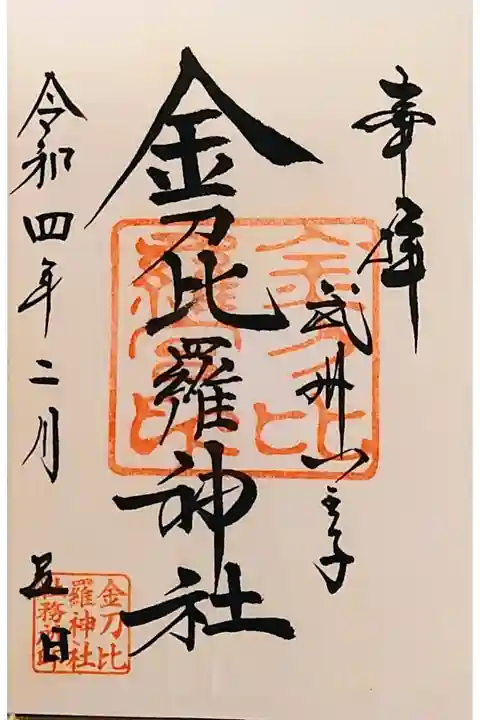 奉拝
武州八王子
金刀比羅神社
令和四年二月五日
金刀比羅
金刀比
羅神社
社務所印